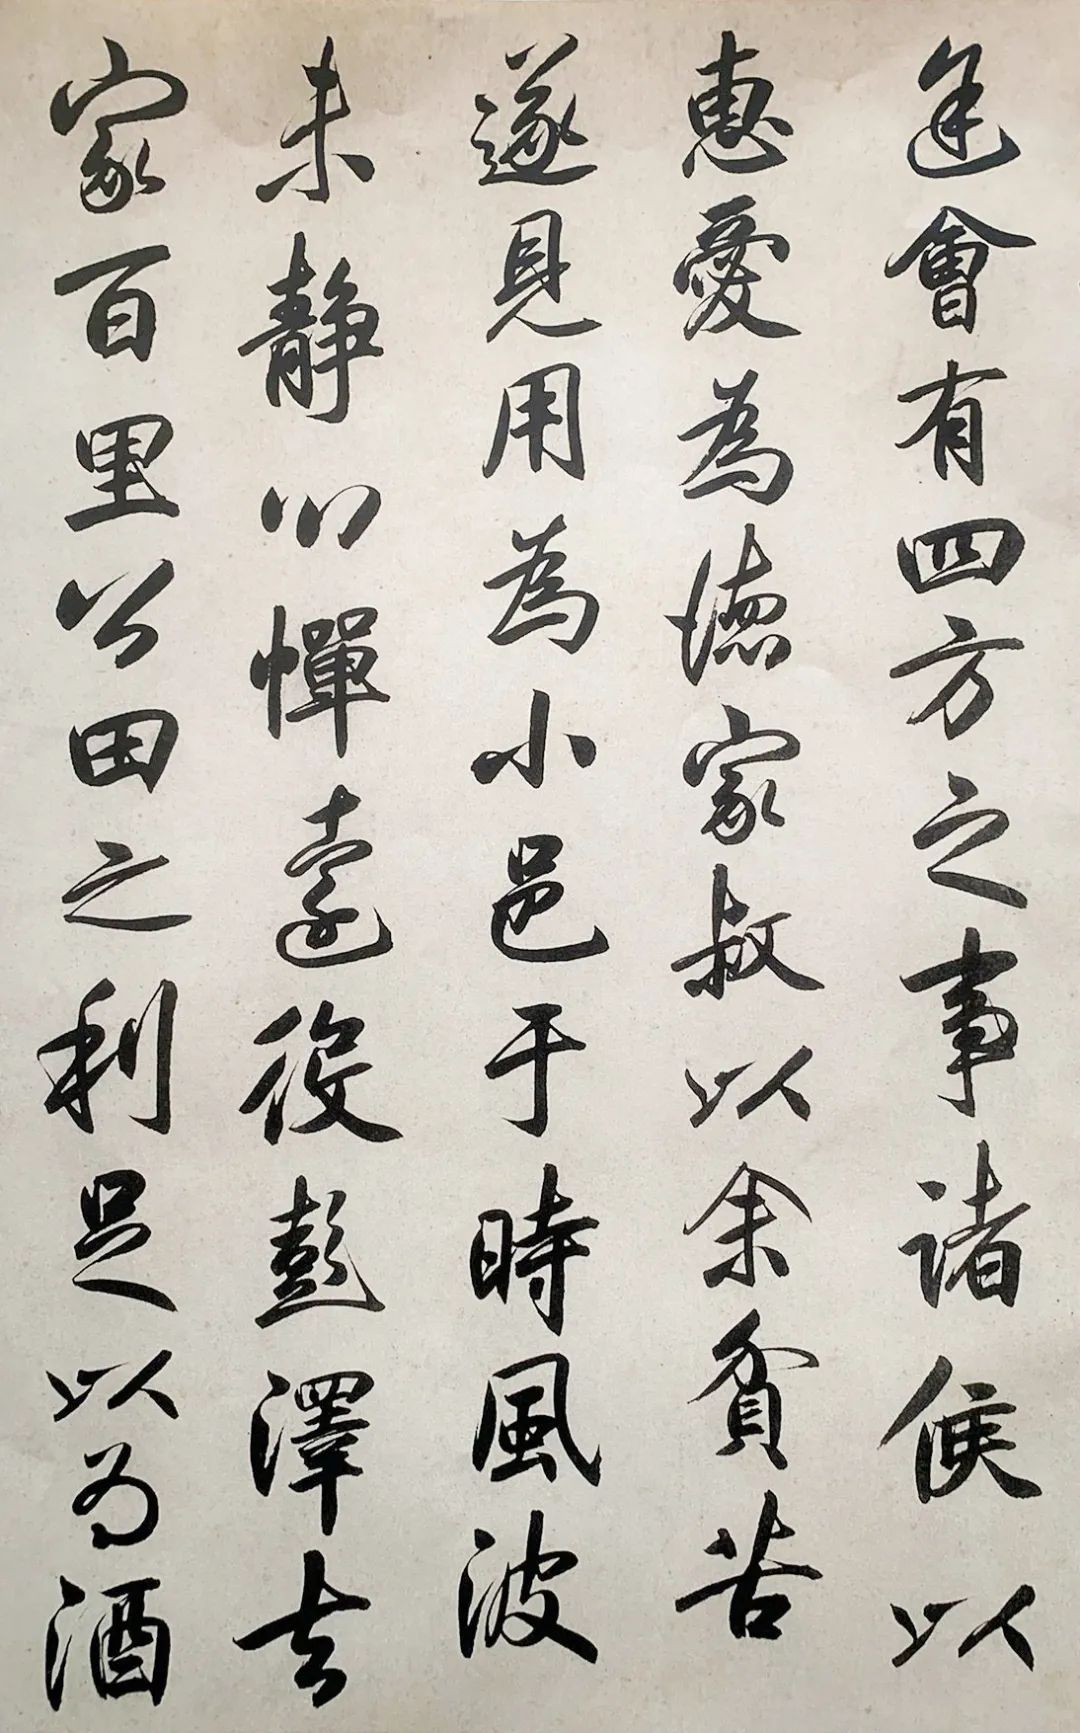 途會有四方之事諸侯以
惠愛為德家叔以余貧苦
遂見用為小邑于時風波
未静心憚遠役彭澤去
家百里公田之利足以為酒